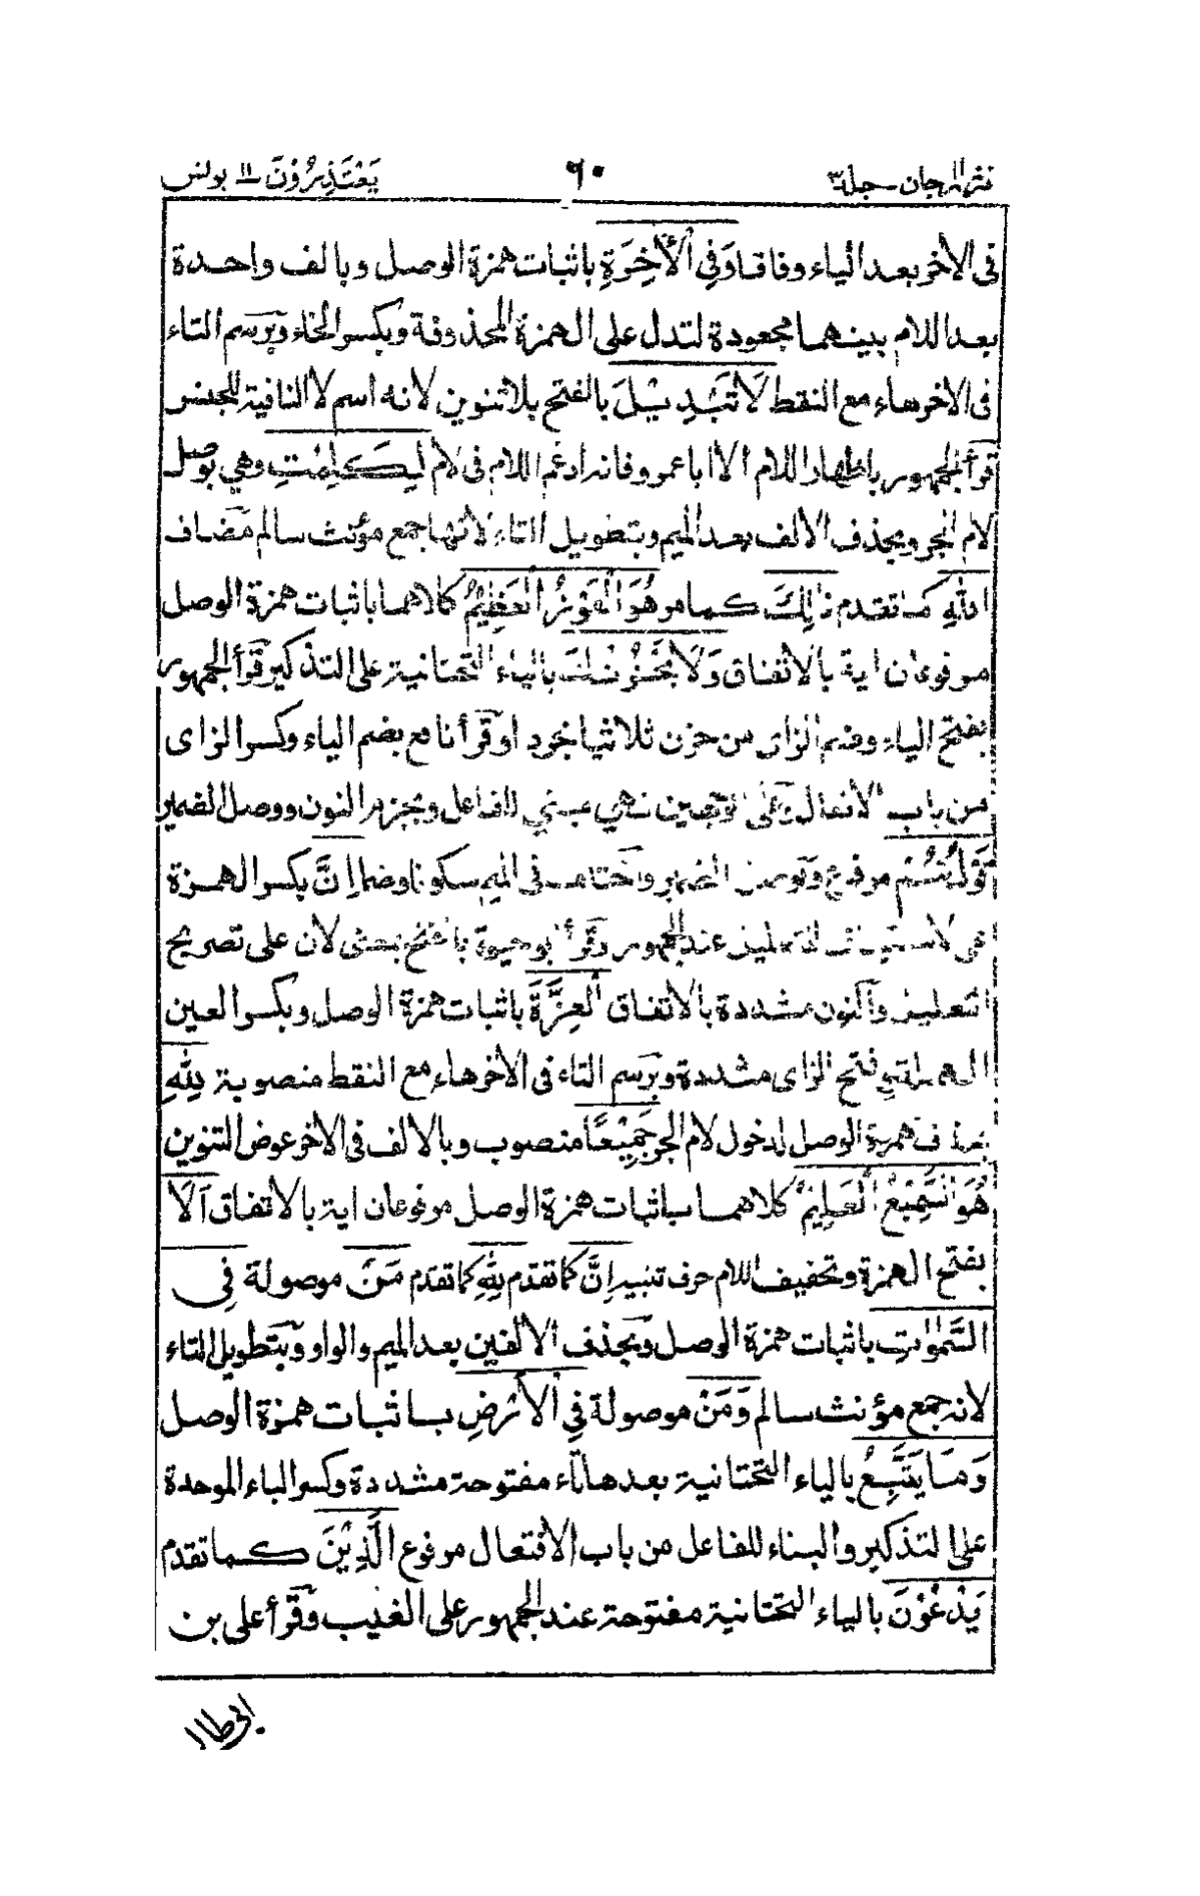 نثر المرجان - جلد ٣
٦٠
يَعْتَذِرُوْنَ ١١ يونس
فى الاخر بعد الياء وفاقا وَفِي الْأٰخِرَةِ باثبات همزة الوصل وبالف واحدة
بعد اللام بينهما مجعودة لتدل على الهمزة المحذوفة وبكسر الخاء وبرسم التاء
فى الاخر هاء مع النقط لَا تَبْدِيْلَ بالفتح بلا تنوين لانه اسم لا النافية للجنس
قرأ الجمهور باظهار اللام الا ابا عمرو فانه ادغم اللام فى لام لِكَلِمٰتِ وهي بوصل
لام الجر وبحذف الالف بعد الميم وبتطويل التاء لانها جمع مؤنث سالم مضاف
اللهِ كما تقدم ذٰلِكَ كما مر هُوَ الْفَوْزُ الْعَظِيْمُ كلاهما باثبات همزة الوصل
مرفوعان اية بالاتفاق وَلَا يَحْزُنْكَ بالياء التحتانية على التذكير قرأ الجمهور
بفتح الياء وضم الزاى من حزن ثلاثيا مجردا وقرأ نافع بضم الياء وكسر الزاى
من باب الافعال وعلى الوجهين نهي مبني للفاعل وبجزم النون ووصل الضمير
قَوْلُهُمْ مرفوع وبوصل الضمير واختلف فى الميم سكونا وضما اِنَّ بكسر الهمزة
على الاستيناف للتعليل عند الجمهور وقرأ ابو حيوة بالفتح بمعنى لان على تصريح
التعليل والنون مشددة بالاتفاق الْعِزَّةَ باثبات همزة الوصل وبكسر العين
المهملة وفتح الزاى مشددة وبرسم التاء فى الاخر هاء مع النقط منصوبة لِلّٰهِ
بحذف همزة الوصل لدخول لام الجر جَمِيْعًا منصوب وبالالف فى الاخر عوض التنوين
هُوَ السَّمِيْعُ الْعَلِيْمُ كلاهما باثبات همزة الوصل مرفوعان اية بالاتفاق اَلَا
بفتح الهمزة وتخفيف اللام حرف تنبيه اِنَّ كما تقدم لِلّٰهِ كما تقدم مَنْ موصولة فِي
السَّمٰوٰتِ باثبات همزة الوصل وبحذف الالفين بعد الميم والواو وبتطويل التاء
لانه جمع مؤنث سالم وَمَنْ موصولة فِي الْاَرْضِ باثبات همزة الوصل
وَمَا يَتَّبِعُ بالياء التحتانية بعدها تاء مفتوحة مشددة وكسر الباء الموحدة
على التذكير والبناء للفاعل من باب الافتعال مرفوع الَّذِيْنَ كما تقدم
يَدْعُوْنَ بالياء التحتانية مفتوحة عند الجمهور على الغيب وقرأ على بن
ابى طالب